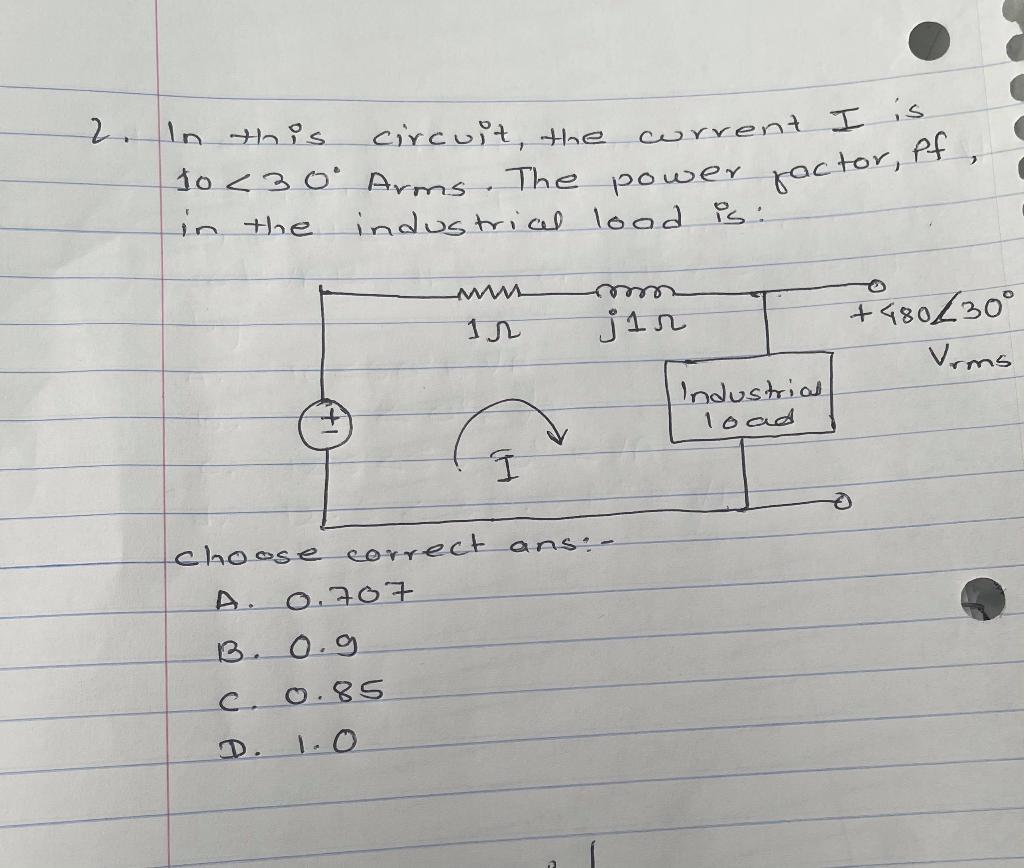 2. In this circuit, the current I is
10<30° Arms. The power factor, Pf,
in the industrial load is:
1Ω j1Ω
+480∠30°
Vrms
Industrial
load
+
-
I
choose correct ans:-
A. 0.707
B. 0.9
C. 0.85
D. 1.0